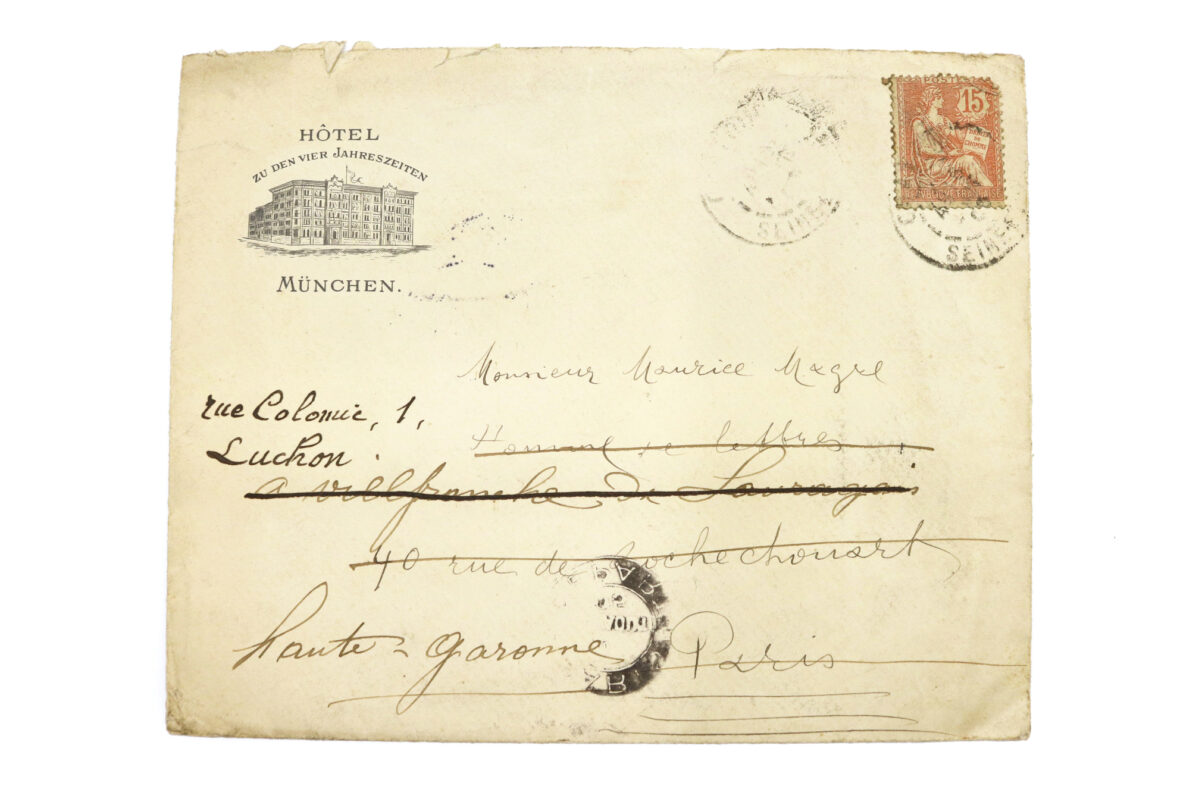 HÔTEL
ZU DEN VIER JAHRESZEITEN
MÜNCHEN.
POSTES
15
DROITS DE L'HOMME
RÉPUBLIQUE FRANÇAISE
SEINE
SEINE
Monsieur Maurice Magre
rue Colomic, 1,
Homme de lettres
Luchon.
a villefranche du Lauragais
40 rue de Rochechouart
Haute-Garonne
Paris